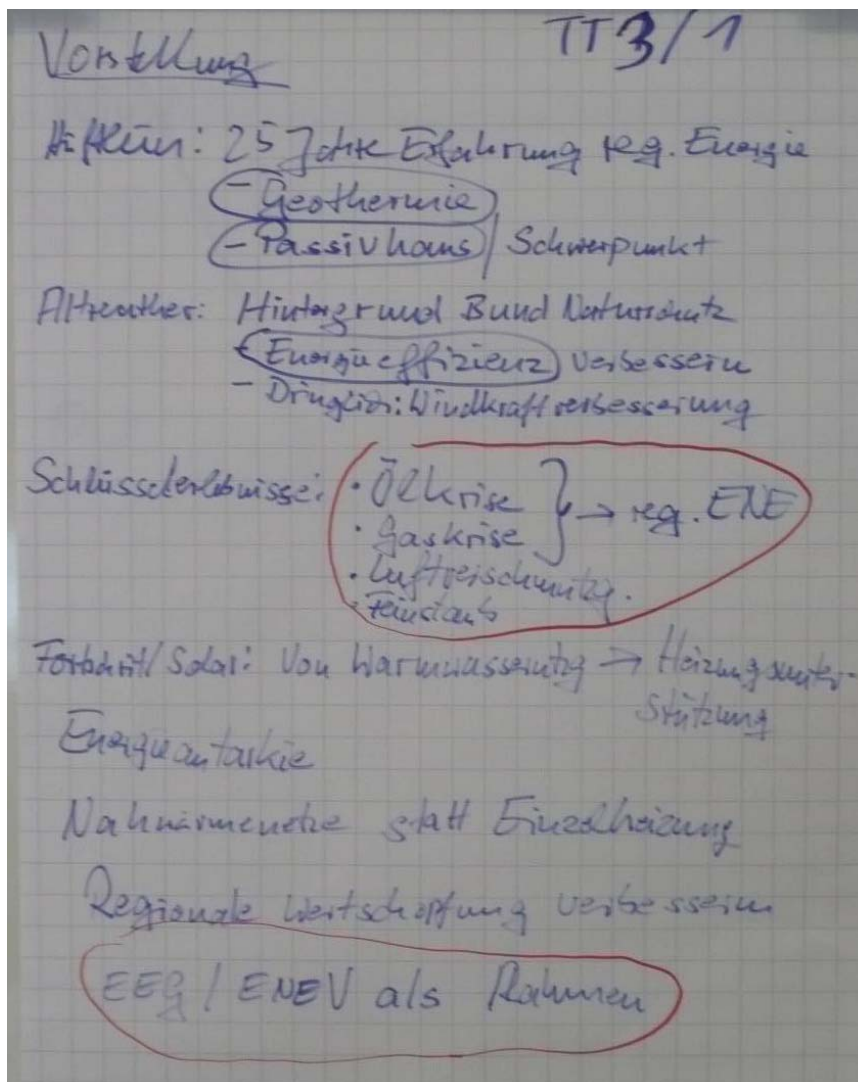 TT3/1
Vorstellung
25 Jahre Erfahrung reg. Energie
- Geothermie
- Passivhaus / Schwerpunkt
Hintergrund Bund Naturschutz
- Energieeffizienz verbessern
- Dringlich: Windkraftverbesserung
Schlüsselerlebnisse:
• Ölkrise
• Gaskrise } → reg. ENE
• Luftverschmutzg.
• Feinstaub
Fortschritt/Solar: Von Warmwassernutzg → Heizungsunter-
stützung
Energieautarkie
Nahwärmenetze statt Einzelheizung
Regionale Wertschöpfung verbessern
EEG / ENEV als Rahmen